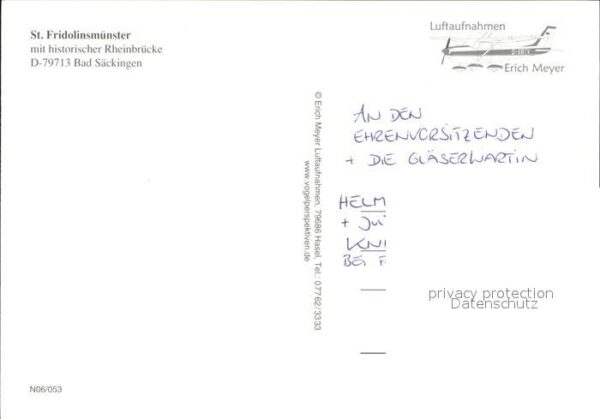 St. Fridolinsmünster
mit historischer Rheinbrücke
D-79713 Bad Säckingen
Luftaufnahmen
Erich Meyer
© Erich Meyer Luftaufnahmen, 79686 Hasel, Tel.: 07762/3333
www.vogelperspektiven.de
AN DEN
EHRENVORSITZENDEN
+ DIE GLÄSERWARTIN
HELM
+ JU
KNI
BEI F
privacy protection
Datenschutz
N06/053